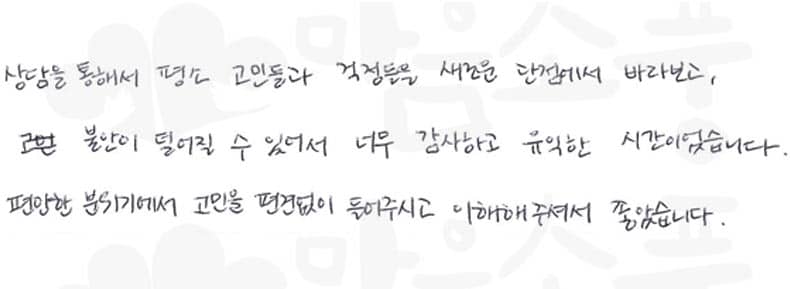 상담을 통해서 평소 고민들과 걱정들을 새로운 단점에서 바라보고,
불안이 덜어질 수 있어서 너무 감사하고 유익한 시간이었습니다.
편안한 분위기에서 고민을 편견없이 들어주시고 이해해주셔서 좋았습니다.